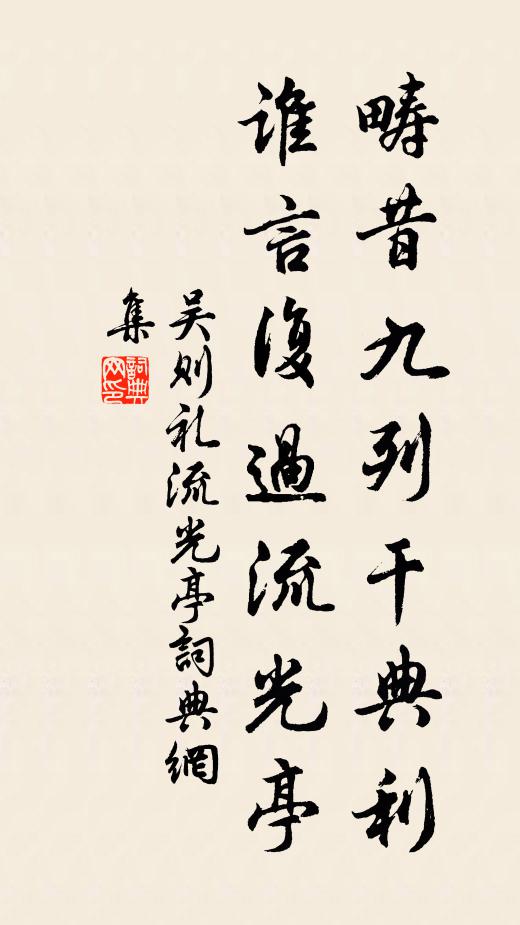 疇昔九列干典利
谁言復過流光亭
吴则礼流光亭詞典網
集
詞典
网印